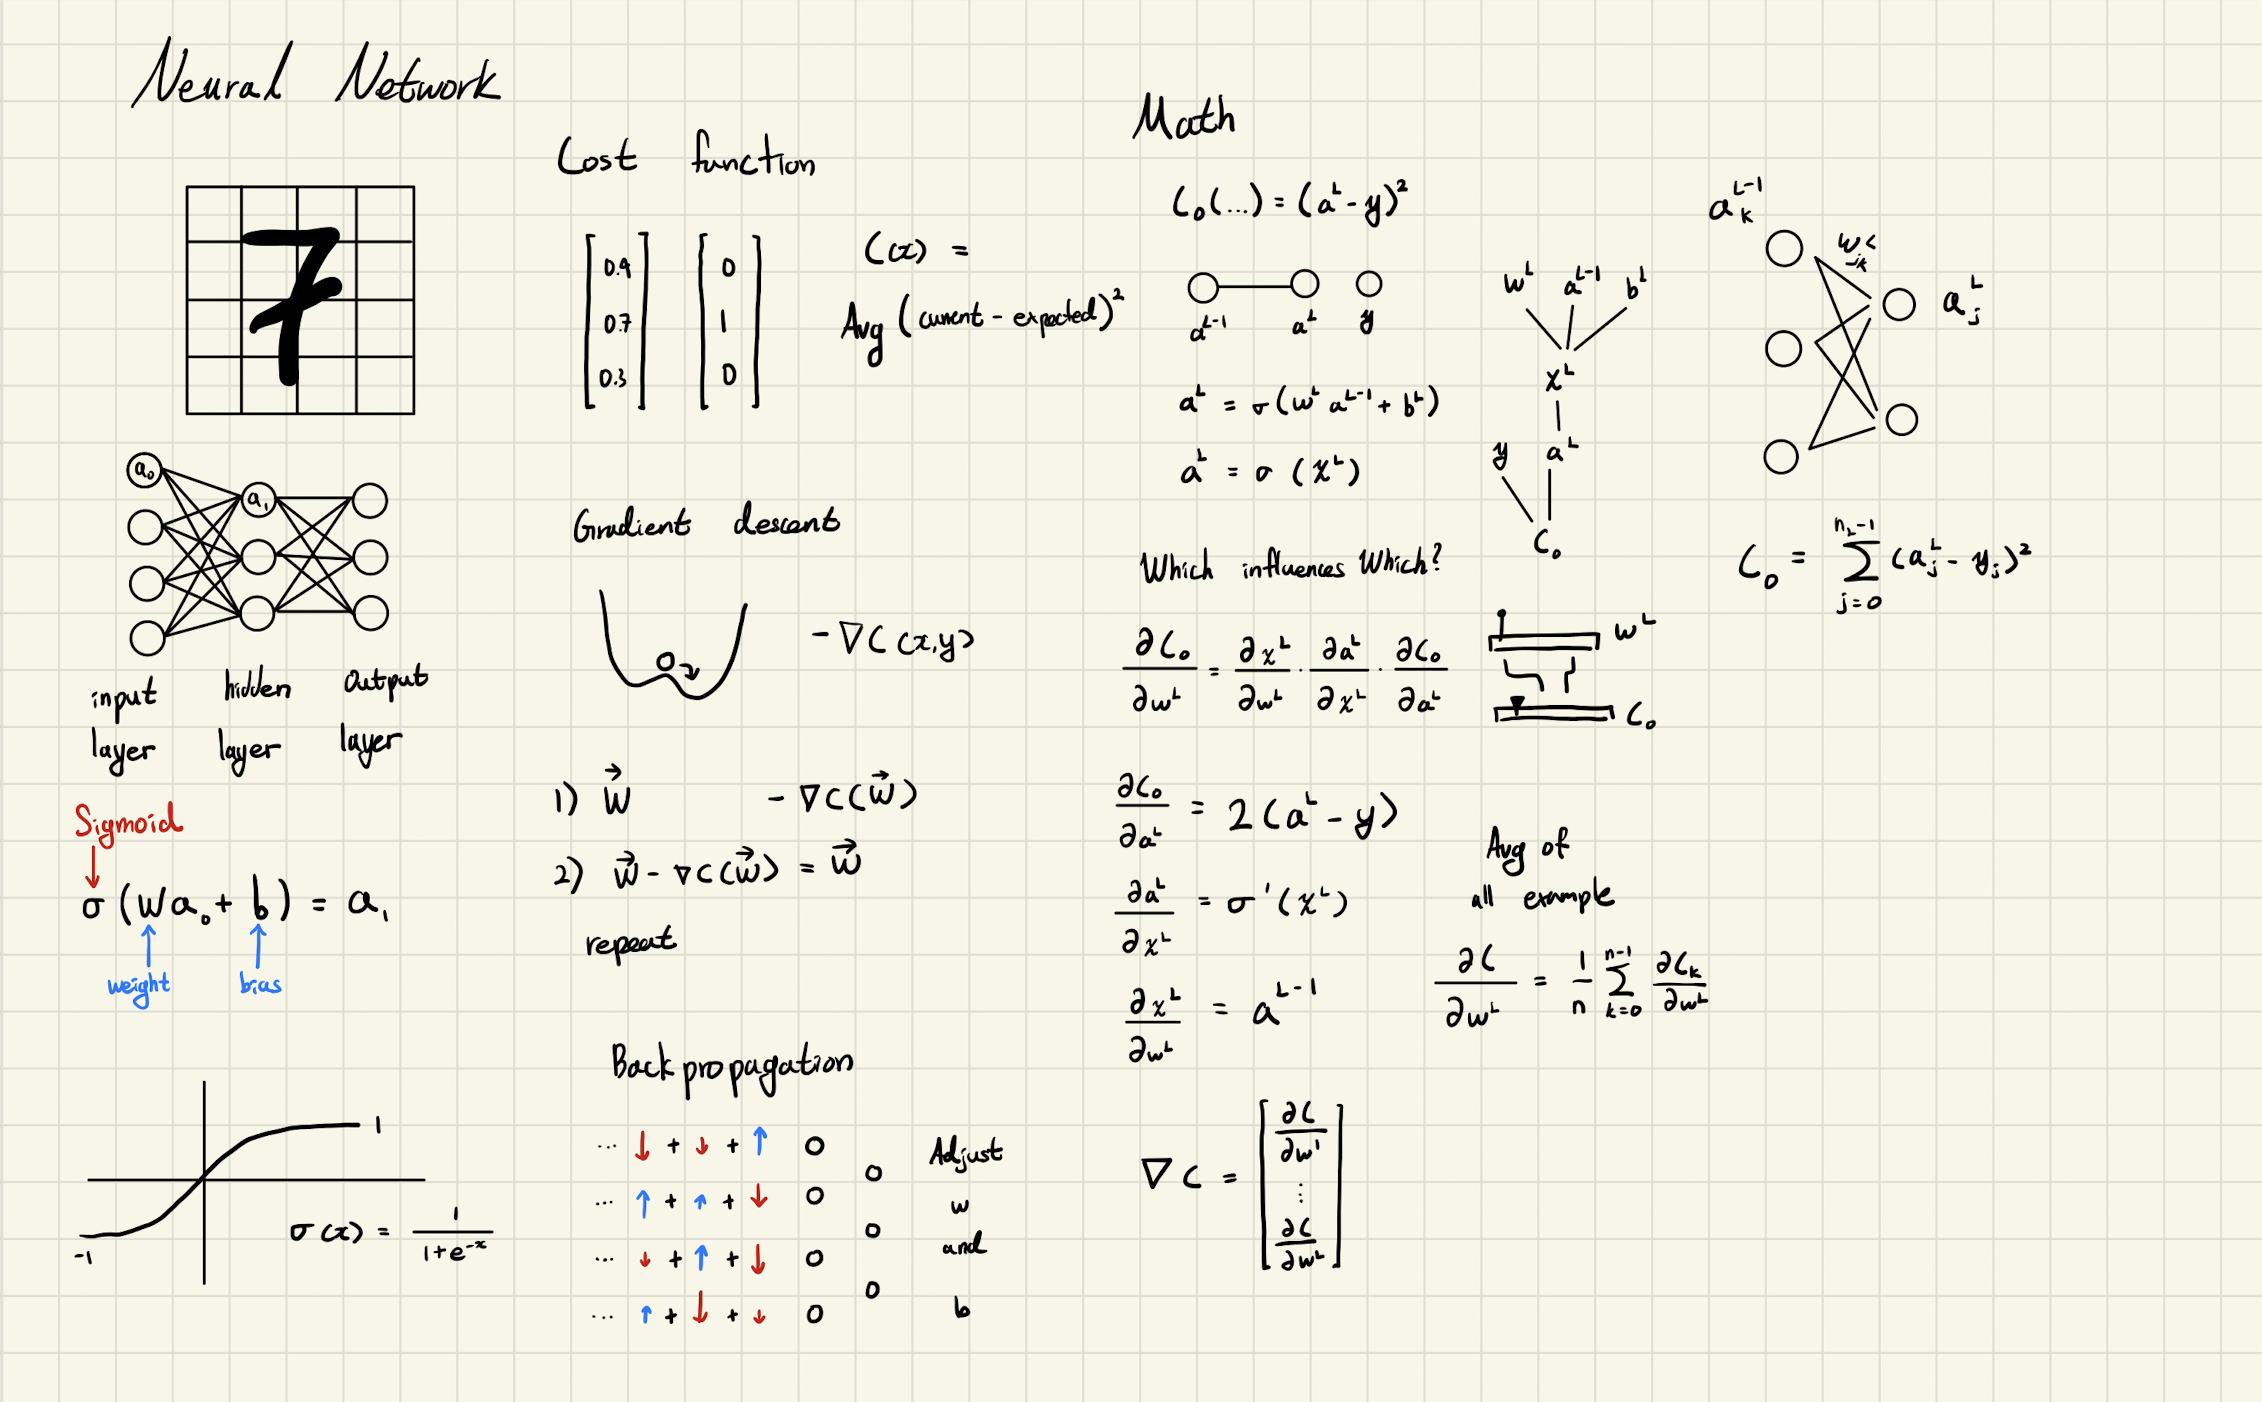 Neural Network
a₀
a₁
input layer
hidden layer
output layer
Sigmoid
σ(wa₀ + b) = a₁
weight
bias
1
-1
σ(x) = 1/(1+e^-x)
Cost function
[0.9 0.7 0.3]
[0 1 0]
C(x) =
Avg (current - expected)²
Gradient descent
-∇C(x,y)
1) w⃗ -∇C(w⃗)
2) w⃗ - ∇C(w⃗) = w⃗
repeat
Back propagation
... ↓ + ↓ + ↑
... ↑ + ↑ + ↓
... ↓ + ↑ + ↓
... ↑ + ↓ + ↓
Adjust
w
and
b
Math
C₀(...) = (a^L - y)²
a^L-1 a^L y
a^L = σ(w^L a^L-1 + b^L)
a^L = σ(x^L)
w^L a^L-1 b^L
x^L
y a^L
C₀
Which influences Which?
∂C₀/∂w^L = ∂x^L/∂w^L · ∂a^L/∂x^L · ∂C₀/∂a^L
w^L
C₀
∂C₀/∂a^L = 2(a^L - y)
∂a^L/∂x^L = σ'(x^L)
∂x^L/∂w^L = a^L-1
Avg of
all example
∂C/∂w^L = 1/n Σ_{k=0}^{n-1} ∂C_k/∂w^L
∇C = [∂C/∂w^1 ⋮ ∂C/∂w^L]
a_k^L-1
w_jk^L
a_j^L
C₀ = Σ_{j=0}^{n_L-1} (a_j^L - y_j)²